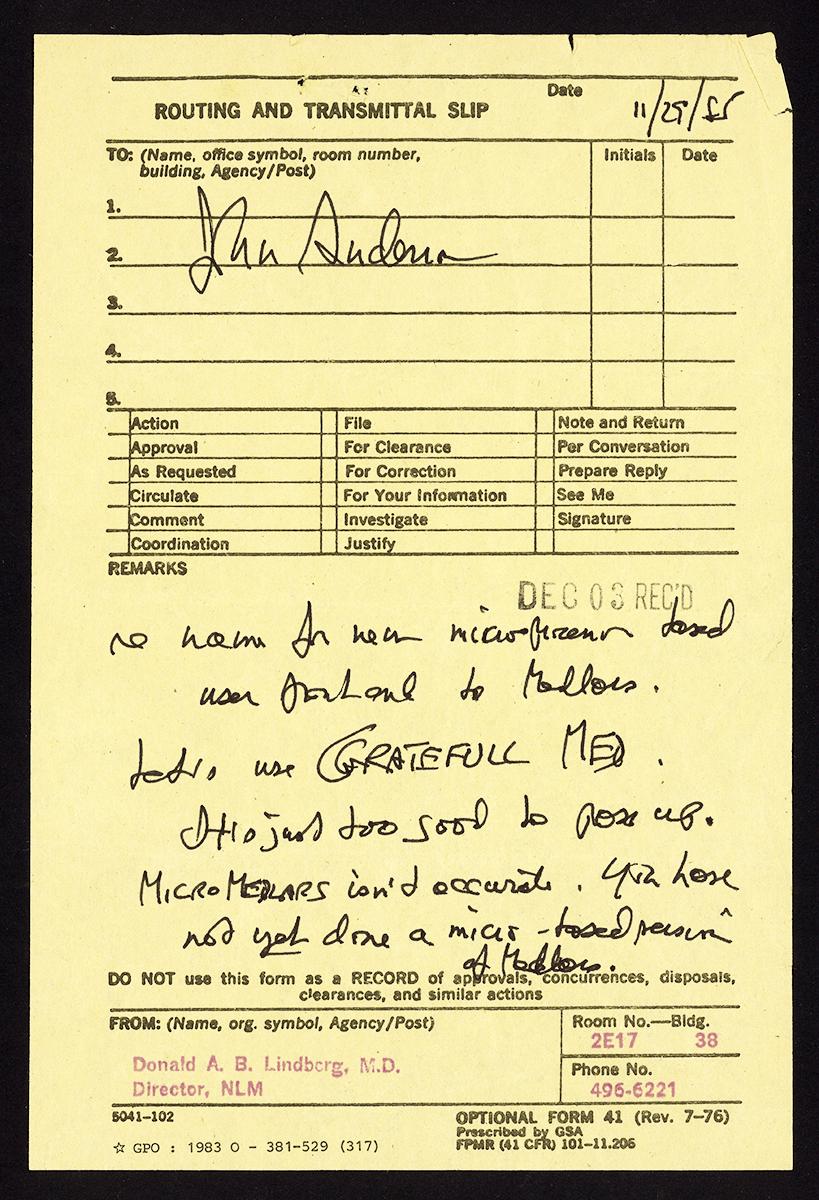 ROUTING AND TRANSMITTAL SLIP
Date
11/29/85
TO: (Name, office symbol, room number,
building, Agency/Post)
Initials
Date
1.
2.
3.
4.
5.
Action
File
Note and Return
Approval
For Clearance
Per Conversation
As Requested
For Correction
Prepare Reply
Circulate
For Your Information
See Me
Comment
Investigate
Signature
Coordination
Justify
REMARKS
DEC 03 REC'D
re name for new based
user front end to Medlars.
Let's use GRATEFULL MED.
It is just too good to pass up.
MICROMEDLARS isn't accurate. You have
not yet done a micro-based version
of Medlars.
DO NOT use this form as a RECORD of approvals, concurrences, disposals,
clearances, and similar actions
FROM: (Name, org. symbol, Agency/Post)
Donald A. B. Lindberg, M.D.
Director, NLM
Room No.—Bldg.
2E17 38
Phone No.
496-6221
5041-102
OPTIONAL FORM 41 (Rev. 7-76)
Prescribed by GSA
FPMR (41 CFR) 101-11.206
☆ GPO : 1983 O - 381-529 (317)